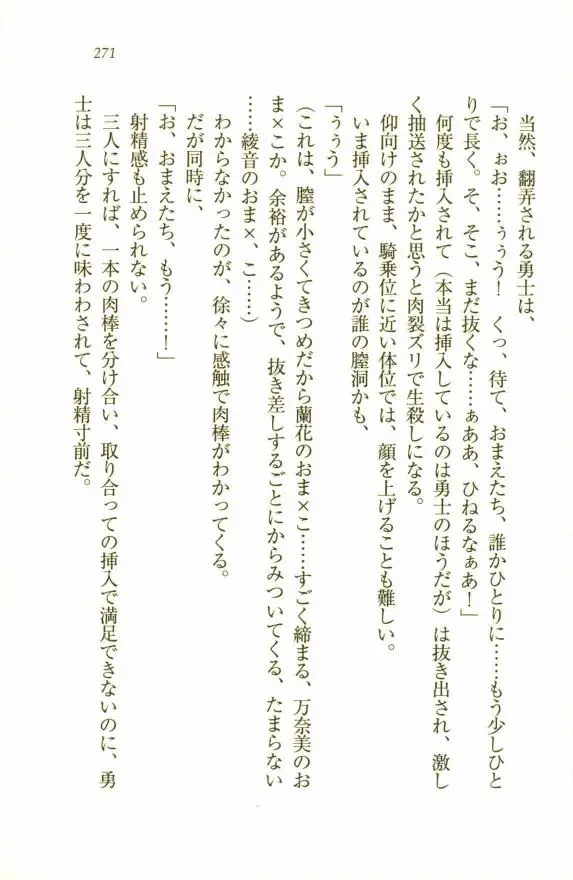 271
当然、翻弄される勇士は、
「お、ぉお……ぅぅう！　くっ、待て、おまえたち、誰かひとりに……もう少しひと
りで長く。そ、そこ、まだ抜くな……ぁああ、ひねるなぁあ！」
何度も挿入されて（本当は挿入しているのは勇士のほうだが）は抜き出され、激し
く抽送されたかと思うと肉裂ズリで生殺しになる。
仰向けのまま、騎乗位に近い体位では、顔を上げることも難しい。
いま挿入されているのが誰の膣洞かも、
「ぅぅう」
（これは、膣が小さくてきつめだから蘭花のおま×こ……すごく締まる、万奈美のお
ま×こか。余裕があるようで、抜き差しするごとにからみついてくる、たまらない
……綾音のおま×、こ……）
わからなかったのが、徐々に感触で肉棒がわかってくる。
だが同時に、
「お、おまえたち、もう……！」
射精感も止められない。
三人にすれば、一本の肉棒を分け合い、取り合っての挿入で満足できないのに、勇
士は三人分を一度に味わわされて、射精寸前だ。